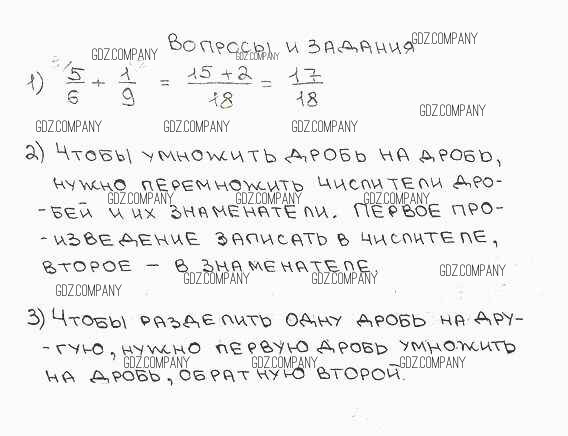 GDZ.COMPANY
ВОПРОСЫ И ЗАДАНИЯ
GDZ.COMPANY GDZ.COMPANY
1) 5/6 + 1/9 = 15+2/18 = 17/18
GDZ.COMPANY
GDZ.COMPANY GDZ.COMPANY GDZ.COMPANY
2) ЧТОБЫ УМНОЖИТЬ ДРОБЬ НА ДРОБЬ,
НУЖНО ПЕРЕМНОЖИТЬ ЧИСЛИТЕЛИ ДРО-
GDZ.COMPANY GDZ.COMPANY GDZ.COMPANY
-БЕЙ И ИХ ЗНАМЕНАТЕЛИ. ПЕРВОЕ ПРО-
-ИЗВЕДЕНИЕ ЗАПИСАТЬ В ЧИСЛИТЕЛЕ,
ВТОРОЕ – В ЗНАМЕНАТЕЛЕ.
GDZ.COMPANY
GDZ.COMPANY GDZ.COMPANY
GDZ.COMPANY
3) ЧТОБЫ РАЗДЕЛИТЬ ОДНУ ДРОБЬ НА ДРУ-
-ГУЮ, НУЖНО ПЕРВУЮ ДРОБЬ УМНОЖИТЬ
GDZ.COMPANY GDZ.COMPANY GDZ.COMPANY
НА ДРОБЬ, ОБРАТНУЮ ВТОРОЙ.